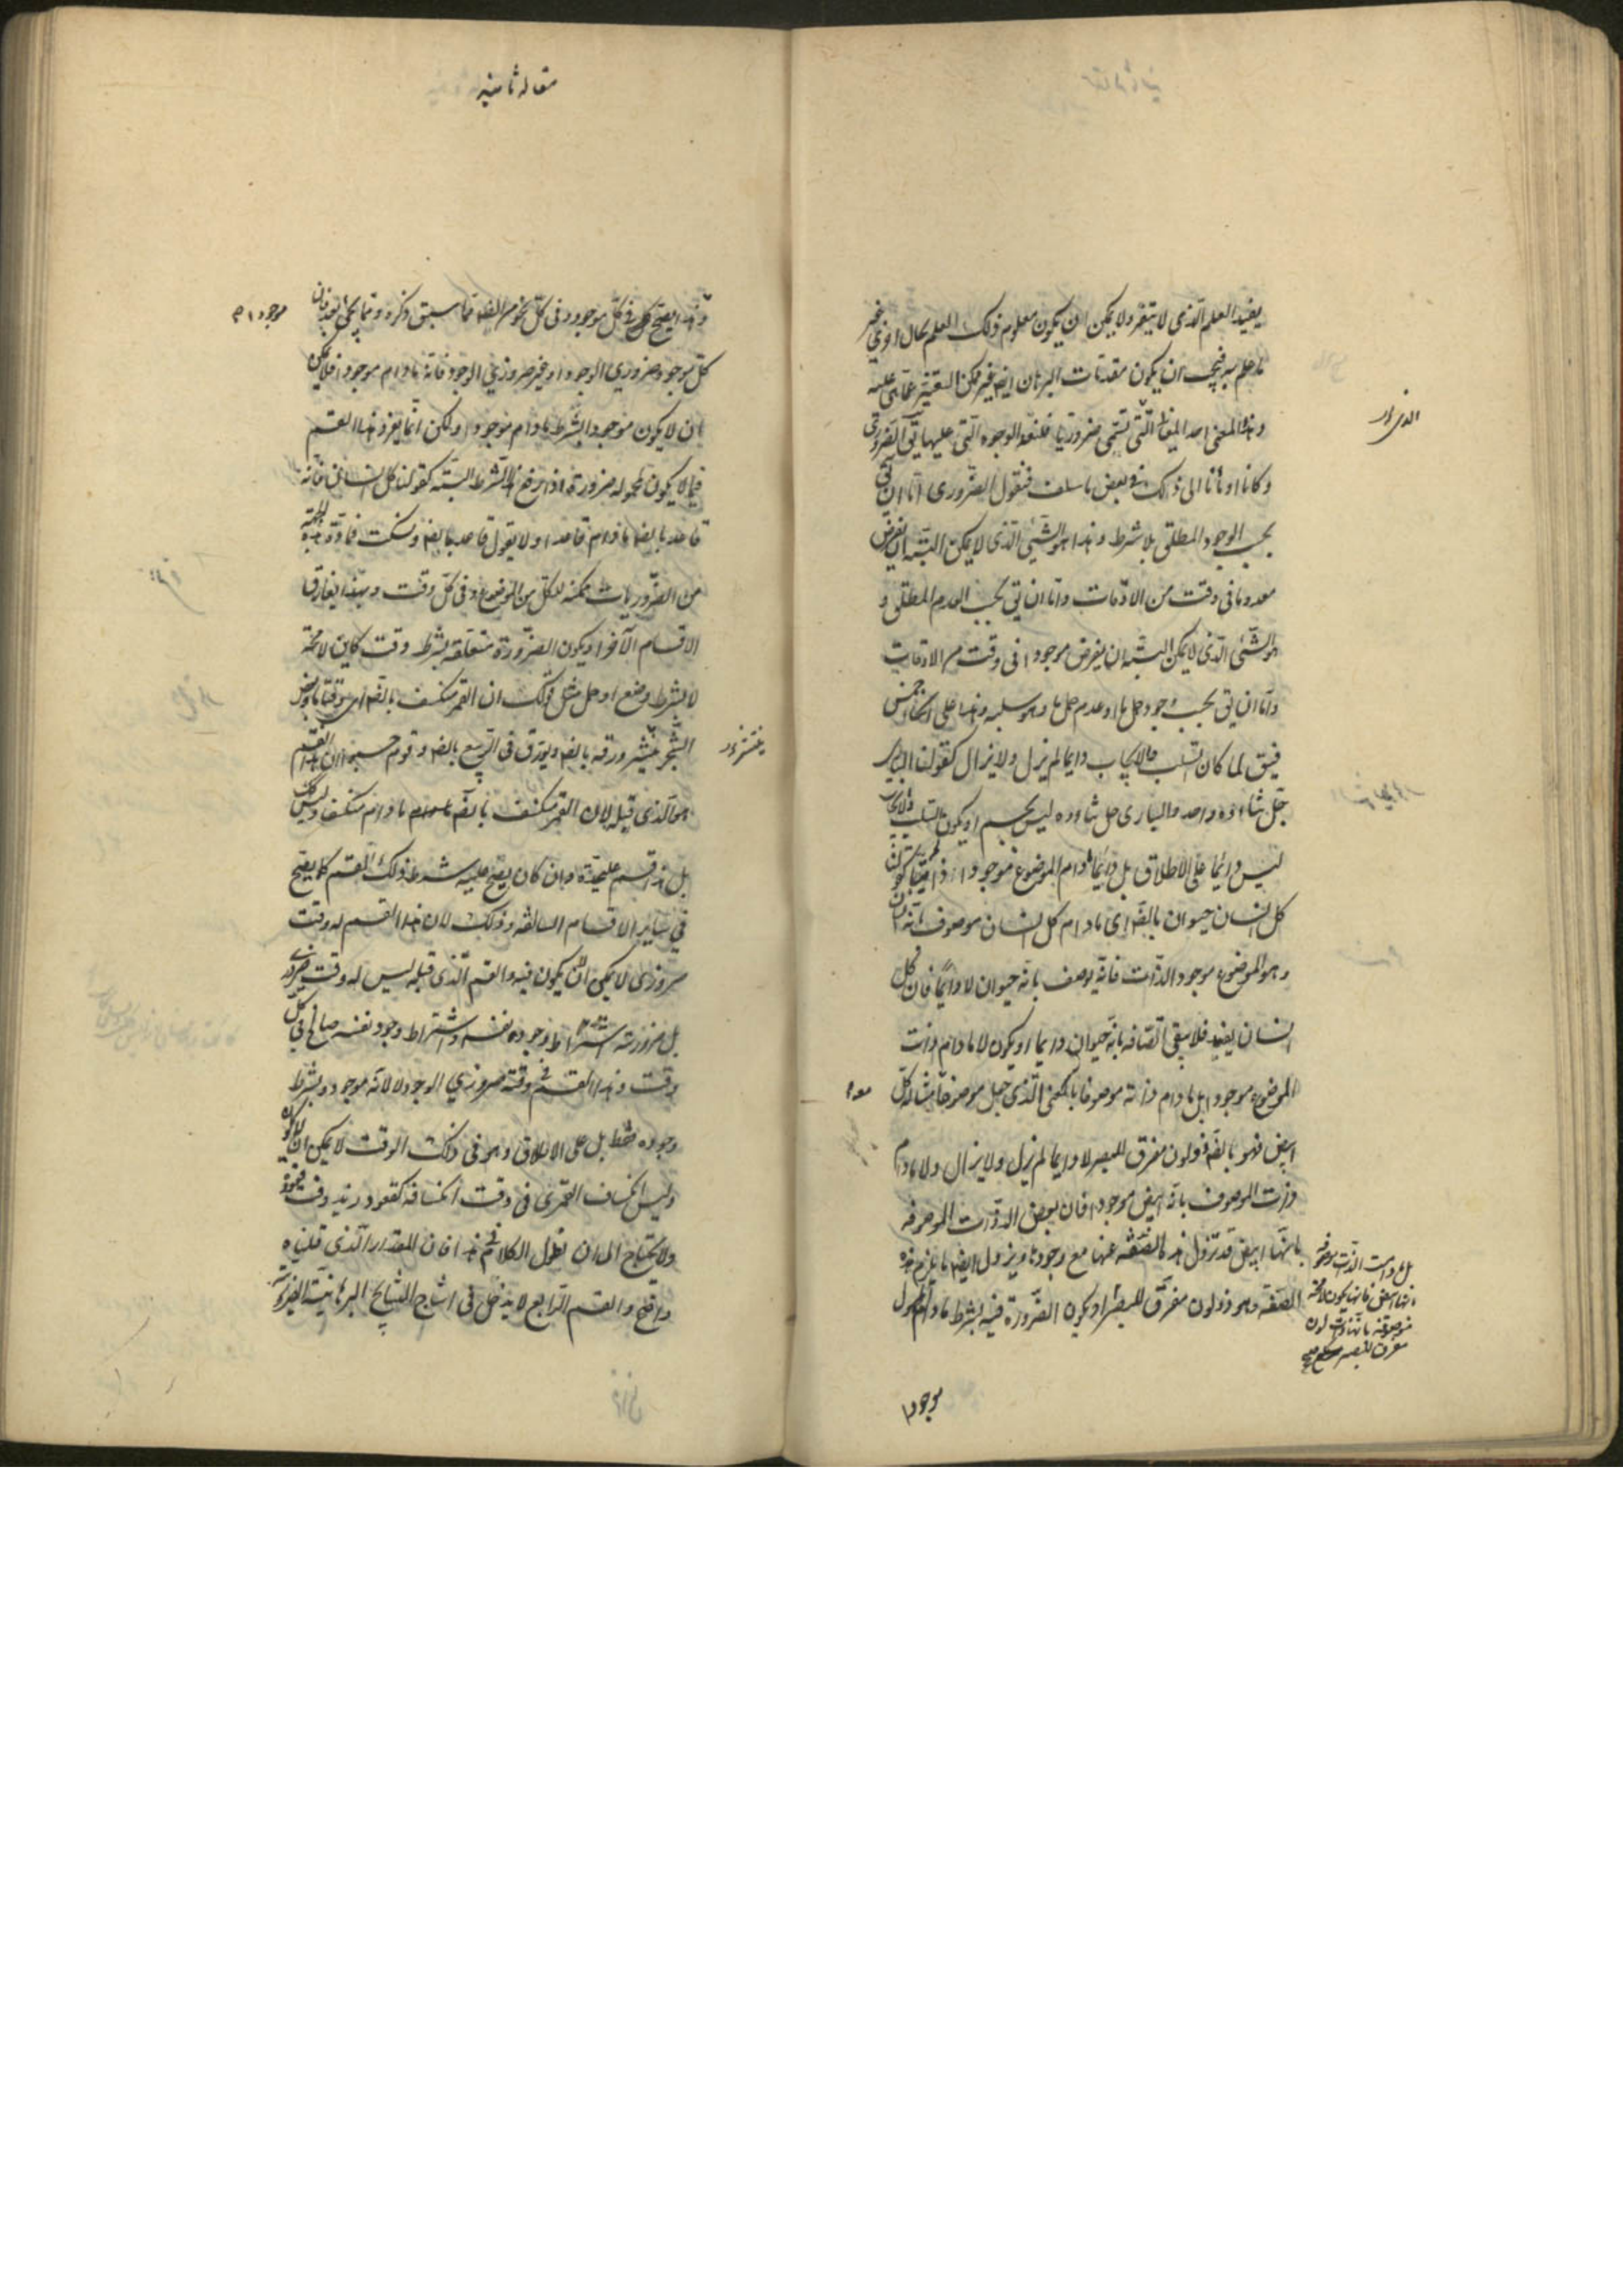 يفيد العلم الذى لا يتغير ولا يمكن ان يكون معلوم ذلك العلم بحال اخرى غير
ما علم به فيجب ان يكون مقدمات البرهان ايضا غير ممكنة التغير عما هى عليه
وهذا المعنى احد المعانى التى تسمى ضروريا فلنعد الوجوه التى عليها يق الضرورى
وكانا اومأنا الى ذلك فى بعض ما سلف فنقول الضرورى اما ان يق
بحسب الوجود المطلق بلا شرط وهذا هو الشىء الذى لا يمكن البتة ان يفرض
معدوما فى وقت من الاوقات واما ان يق بحسب العدم المطلق و
هو الشىء الذى لا يمكن البتة ان يفرض موجودا فى وقت من الاوقات
واما ان يق بحسب وجود حمل ما او عدم حمل ما وهو سلبه وهذا على
فيق لما كان السلب والايجاب دايما لم يزل ولا يزال كقولنا البارى
جل ثناؤه واحد والبارى جل ثناؤه ليس بجسم او يكون السلب والايجاب
ليس دائما على الاطلاق بل دائما ما دام الموضوع موجودا
كل انسان حيوان بالضرة اى ما دام كل انسان موصوف بانه انسان
وهو الموضوع موجود الذات فانه يوصف بانه حيوان لا دائما فان كل
انسان يفسد فلا يبقى اتصافه بانه حيوان دايما او يكون لا ما دام ذات
الموضوع موجودا بل ما دام ذاته موصوفا بالمعنى الذى جعل موضوعا مثاله كل
ابيض فهو بالضرة ذو لون مفرق للبصر لا دايما لم يزل ولا يزال ولا ما دام
ذات الموصوف بانه ابيض موجودا فان بعض الذوات الموصوفه
بانها ابيض قد تزول هذه الصفه عنها مع وجودها ويزول ايضا ما يلزم هذه
الصفه وهو ذو لون مفرق للبصر او يكون الضرورة فيه بشرط ما دام المحمول
بل ما دامت الذات موصوفه
موصوفه بانها ذات لون
مفرق للبصر صح
موجودا
مقاله ثانيه
وهذا يصح فى كل موجود وفى كل نحو من الضرة مما سبق ذكره ومما يجىء بعد فان
كل موجود ضرورى الوجود او غير ضرورى الوجود فانه ما دام موجودا فلا يمكن
ان لا يكون موجودا بشرط ما دام موجودا ولكن انما يفرد هذا القسم
فيما لا يكون لمحموله ضرورة اذا رفع هذا الشرط البتة كقولنا كل انسان فانه
قاعد بالضرة ما دام قاعدا ولا يقول قاعد بالضرة وتسكت فمادة هذه الجهة
من الضروريات ممكنه للكل من الموضوع وفى كل وقت وبهذا يفارق
الاقسام الآخر او يكون الضرورة متعلقة بشرط وقت كاين لا محة
لا بشرط وضع او حمل مثل قولك ان القمر منكسف بالضرة اى وقتا ما وبعض
الشجر ينتثر ورقه بالضرة ويورق فى الربيع بالضرة وقوم حسبوا ان هذا القسم
هو الذى قبله لان القمر منكسف بالضرة ما دام منكسفا وليس كذلك
بل هذا قسم عليحدة وان كان يصح عليه شرط ذلك القسم كما يصح
فى ساير الاقسام السالفه وذلك لان هذا القسم له وقت
ضرورى لا يمكن ان لا يكون فيه والقسم الذى قبله ليس له وقت ضرورى
بل ضرورته اشتراط وجود نفسه واشتراط وجود نفسه صالح فى كل
وقت وهذا القسم فى وقته ضرورى الوجود لا لانه موجود وبشرط
وجوده فقط بل على الاطلاق وهو فى ذلك الوقت لا يمكن ان لا يكون
وليس انكساف القمر فى وقت انكسافه كقعود زيد وقت قعوده
ولا يحتاج الى ان نطول الكلام فى هذا فان المقدار الذى قلناه
واضح والقسم الرابع لا يدخل فى انتاج النتايج البرهانية الضروريه